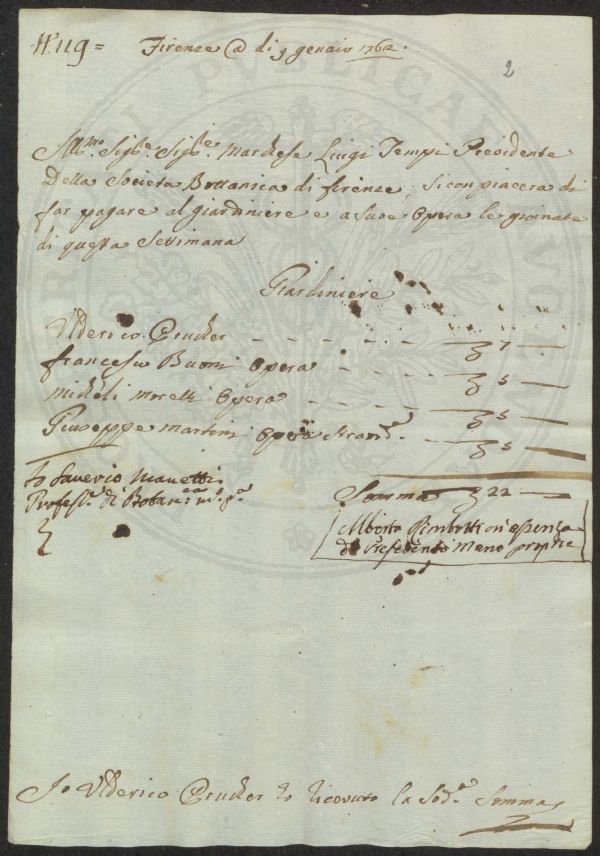 N.° 119 =
Firenze @ di 9 gennaio 1762.
2
Ill.mo Sig.re Sig.re Marchese Luigi Tempi Presidente
Della Societa Bottanica di firenze, si conpiacera di
far pagare al giardiniere e a sue Opera le giornate
di questa Settimana
Giardiniere
Ulderico Prucker - - - - - - 7 —
francesco Buoni Opera - - - 5 —
Micheli Morelli Opera - - - - 5 —
Giuseppe Martini Opera - - 5 —
Io Saverio Manetti
Profes.re di Botan.ca m.o p.a
Somma 22 —
Alberto in assenza
del Presidente mano propria
Io Ulderico Prucker ho ricevuto la Sod.a Somma